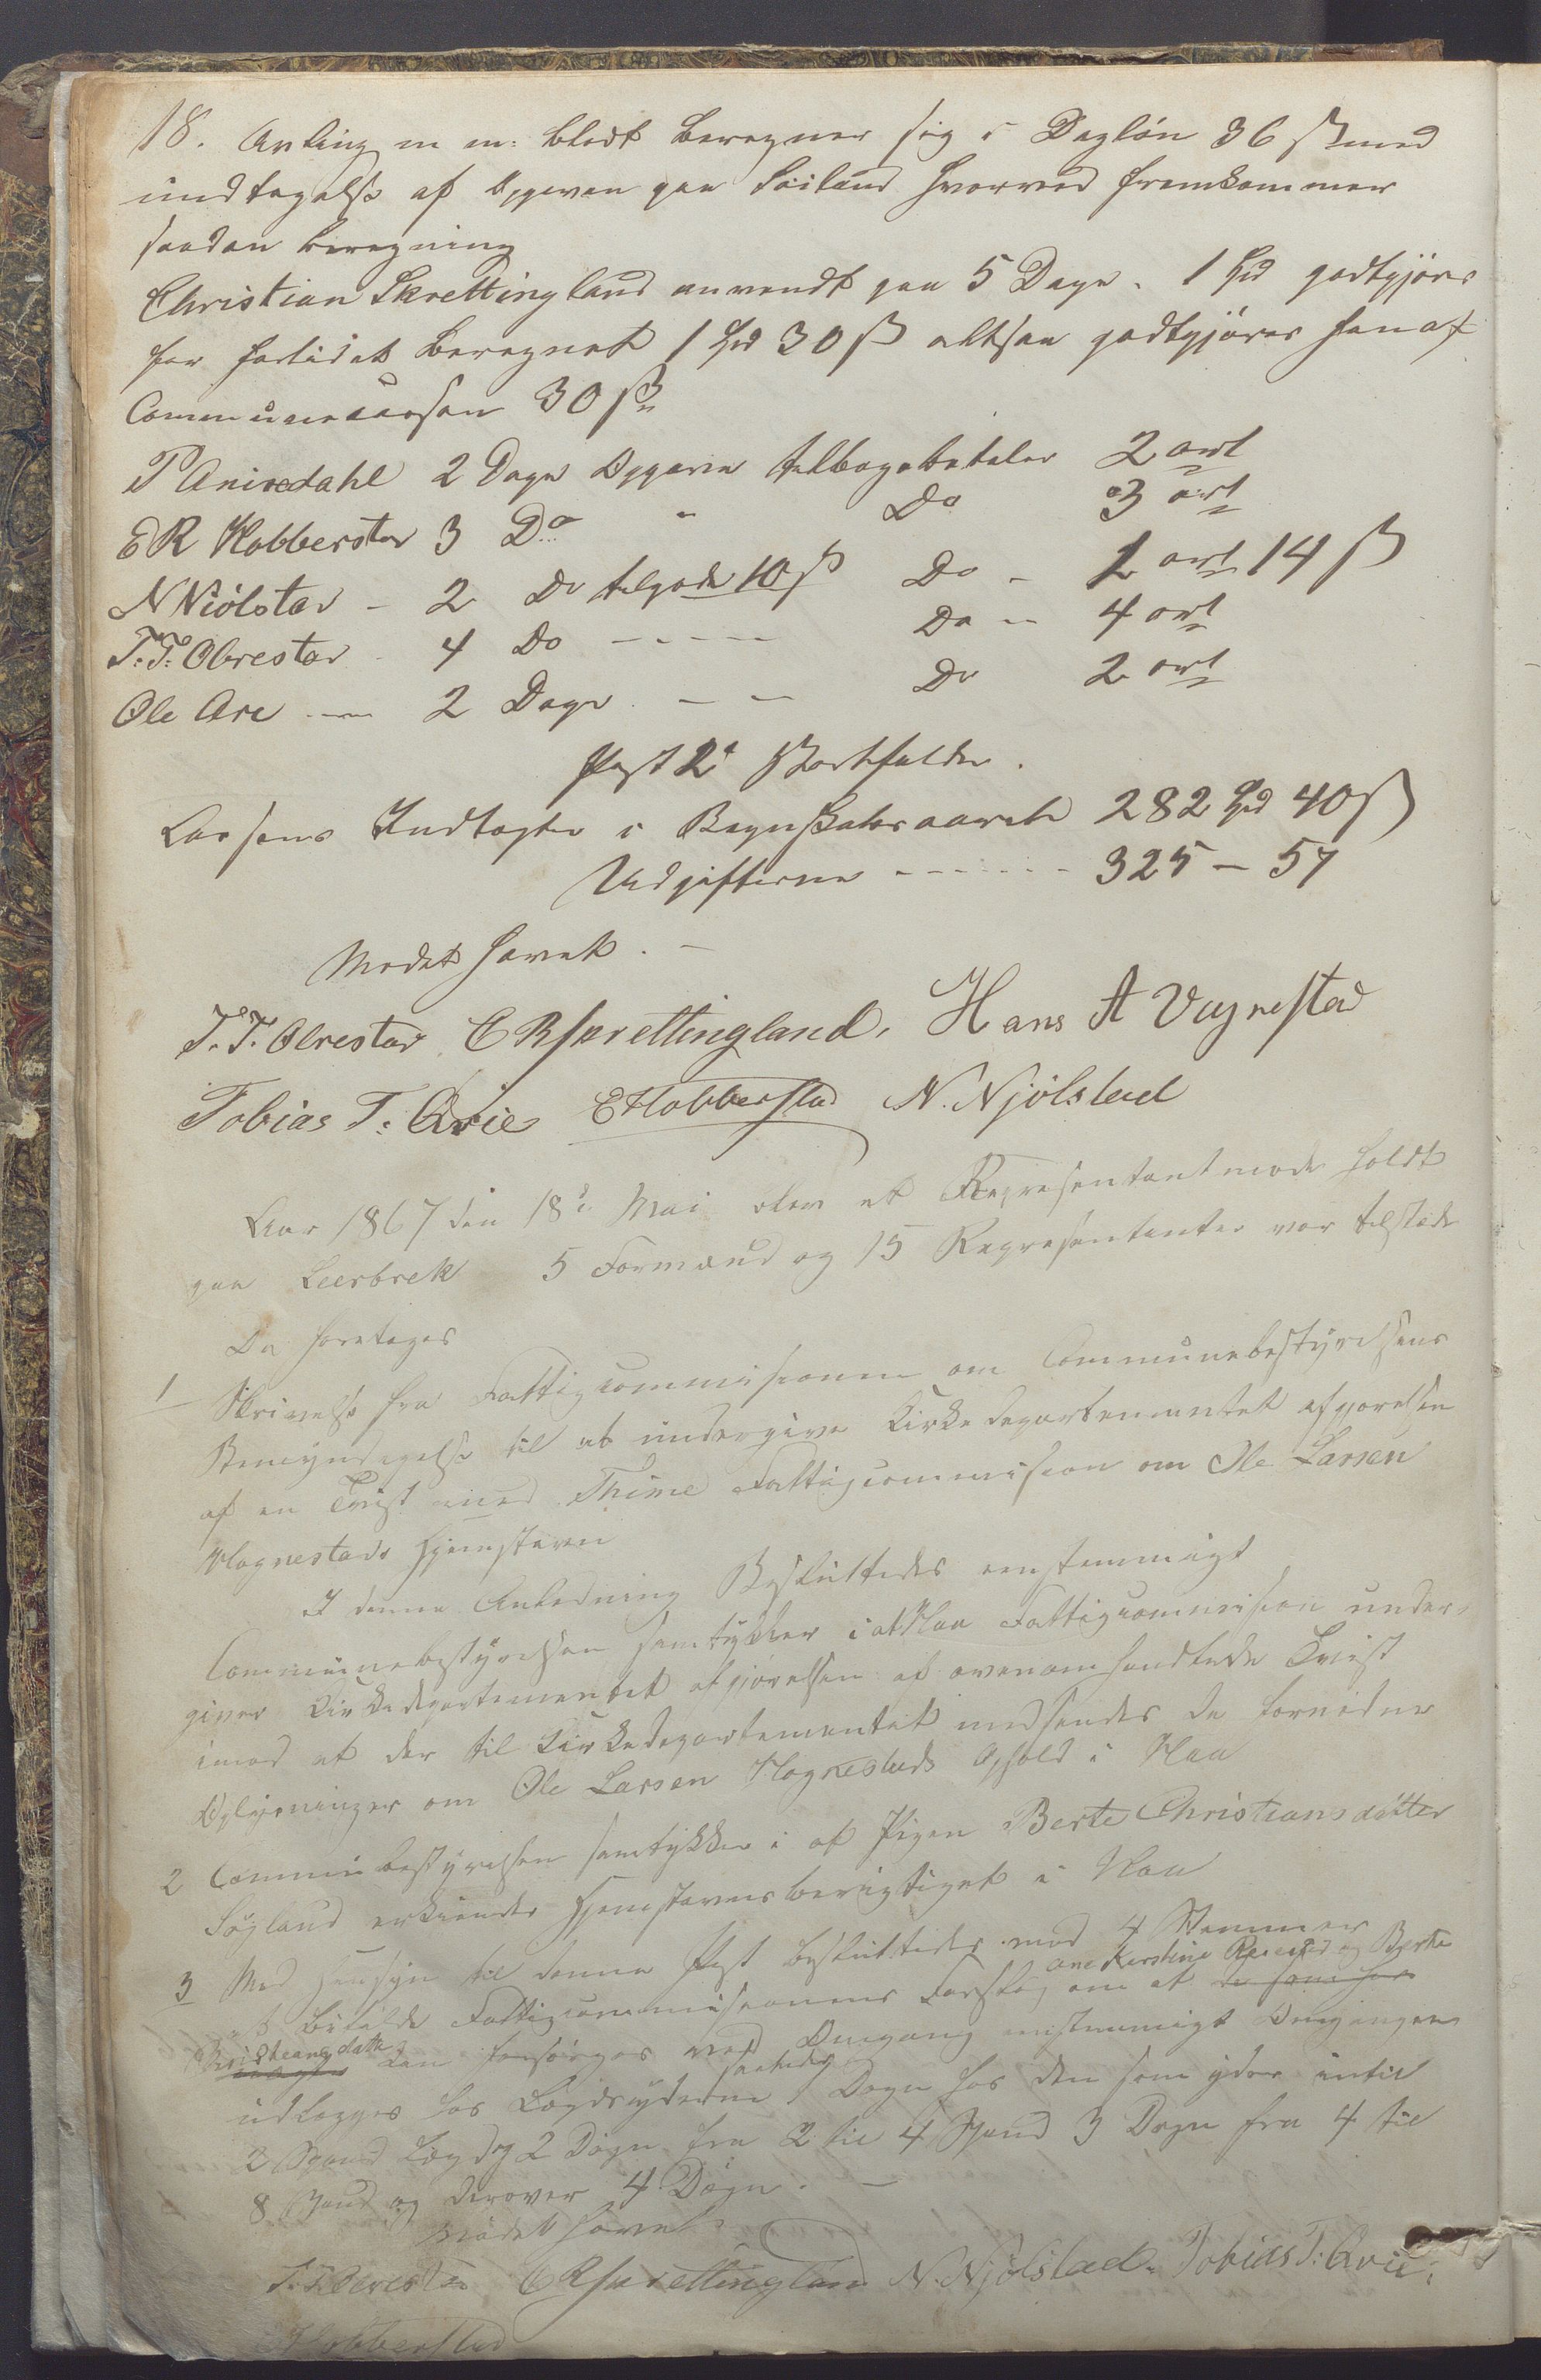 18. m m: blodt beregner sig i Dagløn 36 ß med
undtagelse af Opgaven paa hvorved fremkommer
saadan beregning
Christian Skrettingland anvendt paa 5 Dage. 1 Spd godtgjøres
for forladet beregnet 1 Spd 30 ß altsaa godtgjøres han af
Communecassen 30 ß
P Anisdahl 2 Dage Opgaven tilbagebetaler 2 ort
E R Hobberstad 3 Do " Do 3 ort
N Niølstad - 2 Do tilgode 10 ß Do - 1 ort 14 ß
T. T. Obrestad - 4 Do - - - - Do - 4 ort
Ole Are - 2 Dage - - Do 2 ort
Post 2d Bortfalder.
Cassens Indtægter i Regnskabsaaret 282 Spd 40 ß
Udgifterne - - - - - - 325 - 57
Mødet hævet. -
T. T. Obrestad. C R Skrettingland, Hans A Vagnestad
Tobias T: Qvie EHobberstad N. Njølstad
Aar 1867 den 18d Mai blev et Representantmøde holdt
paa Leerbrek 5 Formænd og 15 Representanter var tilstede
Da foretages
1 Skrivelse fra Fattigcommisionen om Communebestyrelsens
Bemyndigelse til at undergive Kirkedepartementet afgjørelsen
af en Tvist med Thime Fattigcommision om Ole Larsen
Hognestads Hjemstavn
I denne Anledning Besluttedes eenstemmigt
Communebestyrelsen samtykker i at Haa Fattigcommision under-
giver Kirkedepartementet afgjørelsen af ovenomhandlede Tvist
imod at der til Kirkedepartementet medsendes de fornødne
Oplysninger om Ole Larsen Hognestads Ophold i Haa
2 Communebestyrelsen samtykker i at Pigen Berte Christiansdatter
Søyland erkiendes Hjemstavnsberigtiget i Haa
3 Med Hensyn til denne Post besluttedes med 4 Stemmer
ane Kirstine og Berte
at bifalde Fattigcommisionens Forslag om at de som har
Christiansdatter
kan forsørges ved Omgang eenstemmigt Omgangen
saaledes
udlægges hos Lægdsyderne Døgn hos den som yder intil
2 Spand Læg og 2 Døgn fra 2 til 4 Spand 3 Døgn fra 4 til
8 Spand og derover 4 Døgn. -
Mødet hævet
T. T. Obrestad C R Skrettingland N. Njølstad. Tobias T: Qvie:
Hobberstad